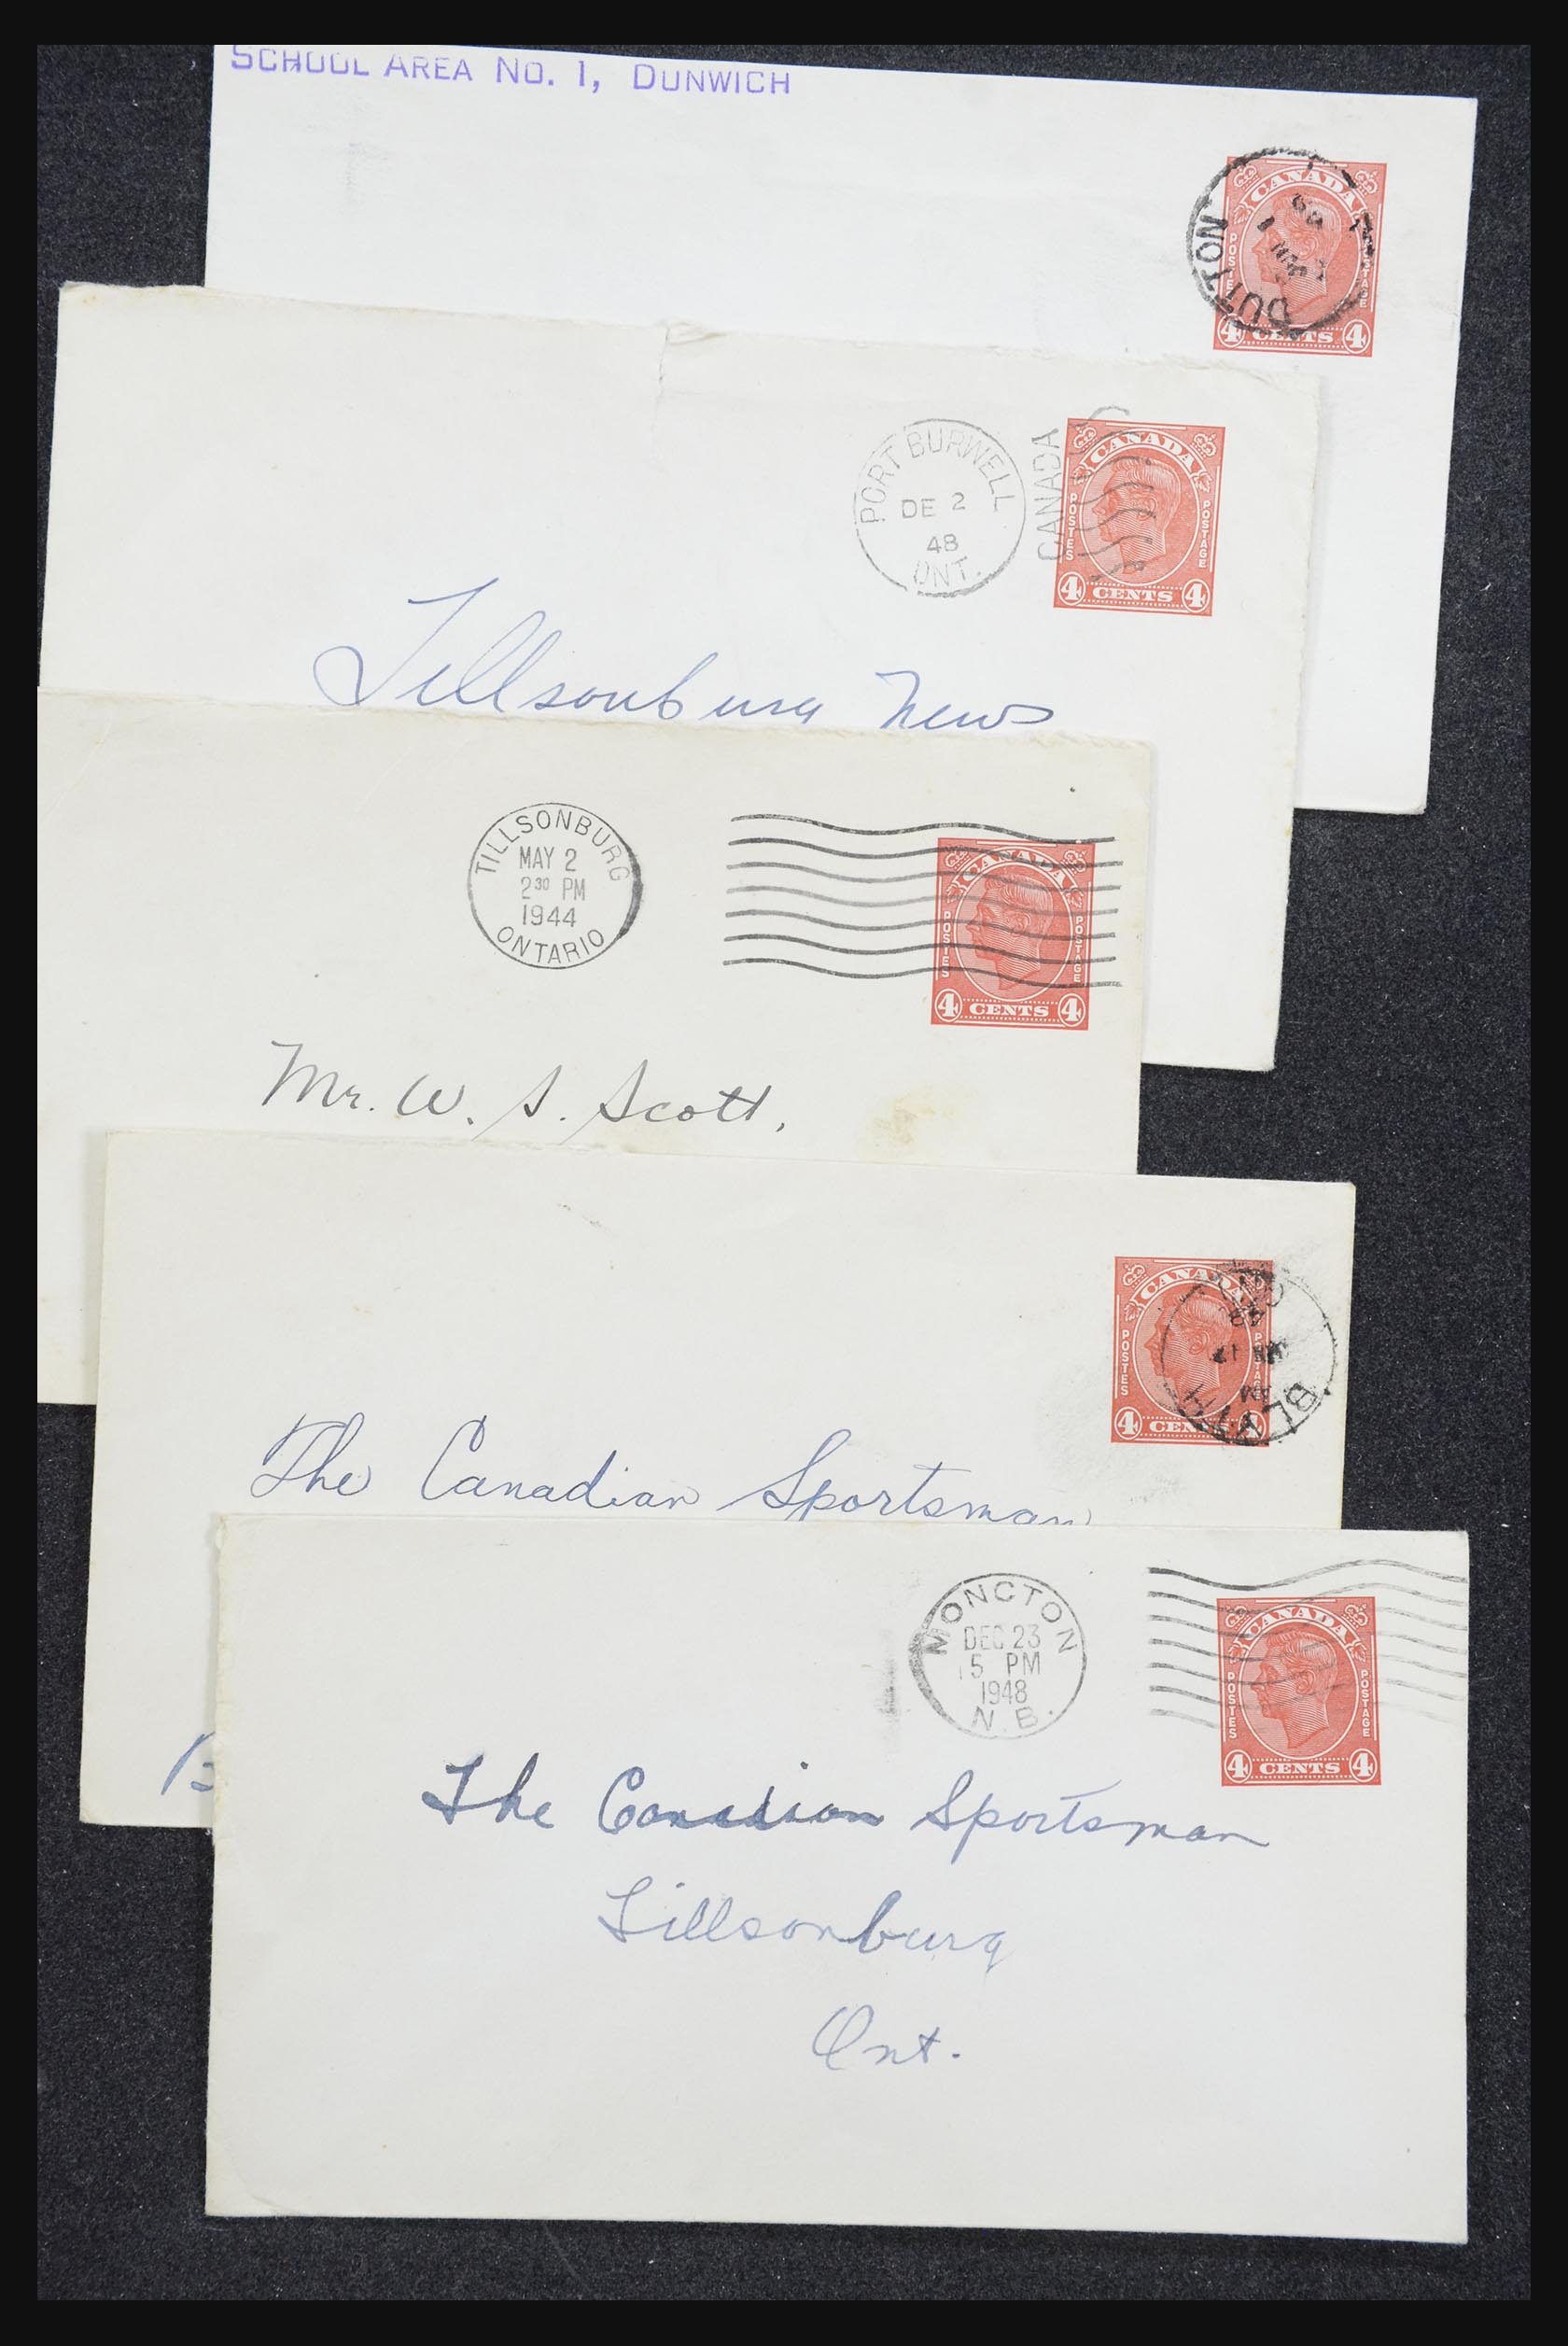 SCHOOL AREA NO. 1, DUNWICH
CANADA
DUTTON
POSTES POSTAGE
4 CENTS 4
PORT BURWELL
DE 2
48
ONT.
CANADA
CANADA
POSTES POSTAGE
4 CENTS 4
Tillsonburg News
TILLSONBURG
MAY 2
2³⁰ PM
1944
ONTARIO
CANADA
POSTES POSTAGE
4 CENTS 4
Mr. W. S. Scott.
CANADA
POSTES POSTAGE
4 CENTS
BLYTH
The Canadian Sportsman
MONCTON
DEC 23
5 PM
1948
N.B.
CANADA
POSTES POSTAGE
4 CENTS 4
The Canadian Sportsman
Tillsonburg
Ont.